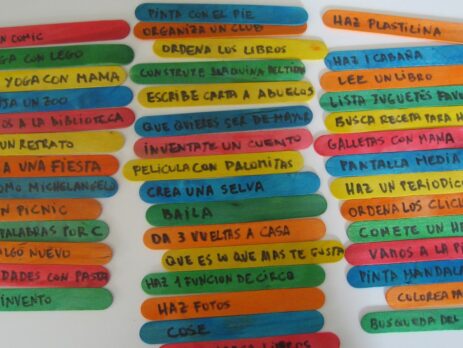 COMIC
CON LEGO
YOGA CON MAMA
UN ZOO
A LA BIBLIOTECA
UN RETRATO
A UNA FIESTA
COMO MICHELANGELO
PICNIC
PALABRAS POR C
ALGO NUEVO
CON PASTA
INVENTO
PINTA CON EL PIE
ORGANIZA UN CLUB
ORDENA LOS LIBROS
CONSTRUYE MAQUINA
ESCRIBE CARTA A ABUELOS
QUE QUIERES SER DE MAYOR
INVENTATE UN CUENTO
PELICULA CON PALOMITAS
CREA UNA SELVA
BAILA
DA 3 VUELTAS A CASA
QUE ES LO QUE MAS TE GUSTA
HAZ 1 FUNCION DE CIRCO
HAZ FOTOS
COSE
LIBROS
HAZ PLASTILINA
HAZ 1 CABAÑA
LEE UN LIBRO
LISTA JUGUETES FAV
BUSCA RECETA PARA H
GALLETAS CON MAMA
PANTALLA MEDIA
HAZ UN PERIODICO
ORDENA LOS CLIC
COMETE UN HE
VAMOS A LA P
PINTA MANDALA
COLOREA
BUSQUEDA DEL